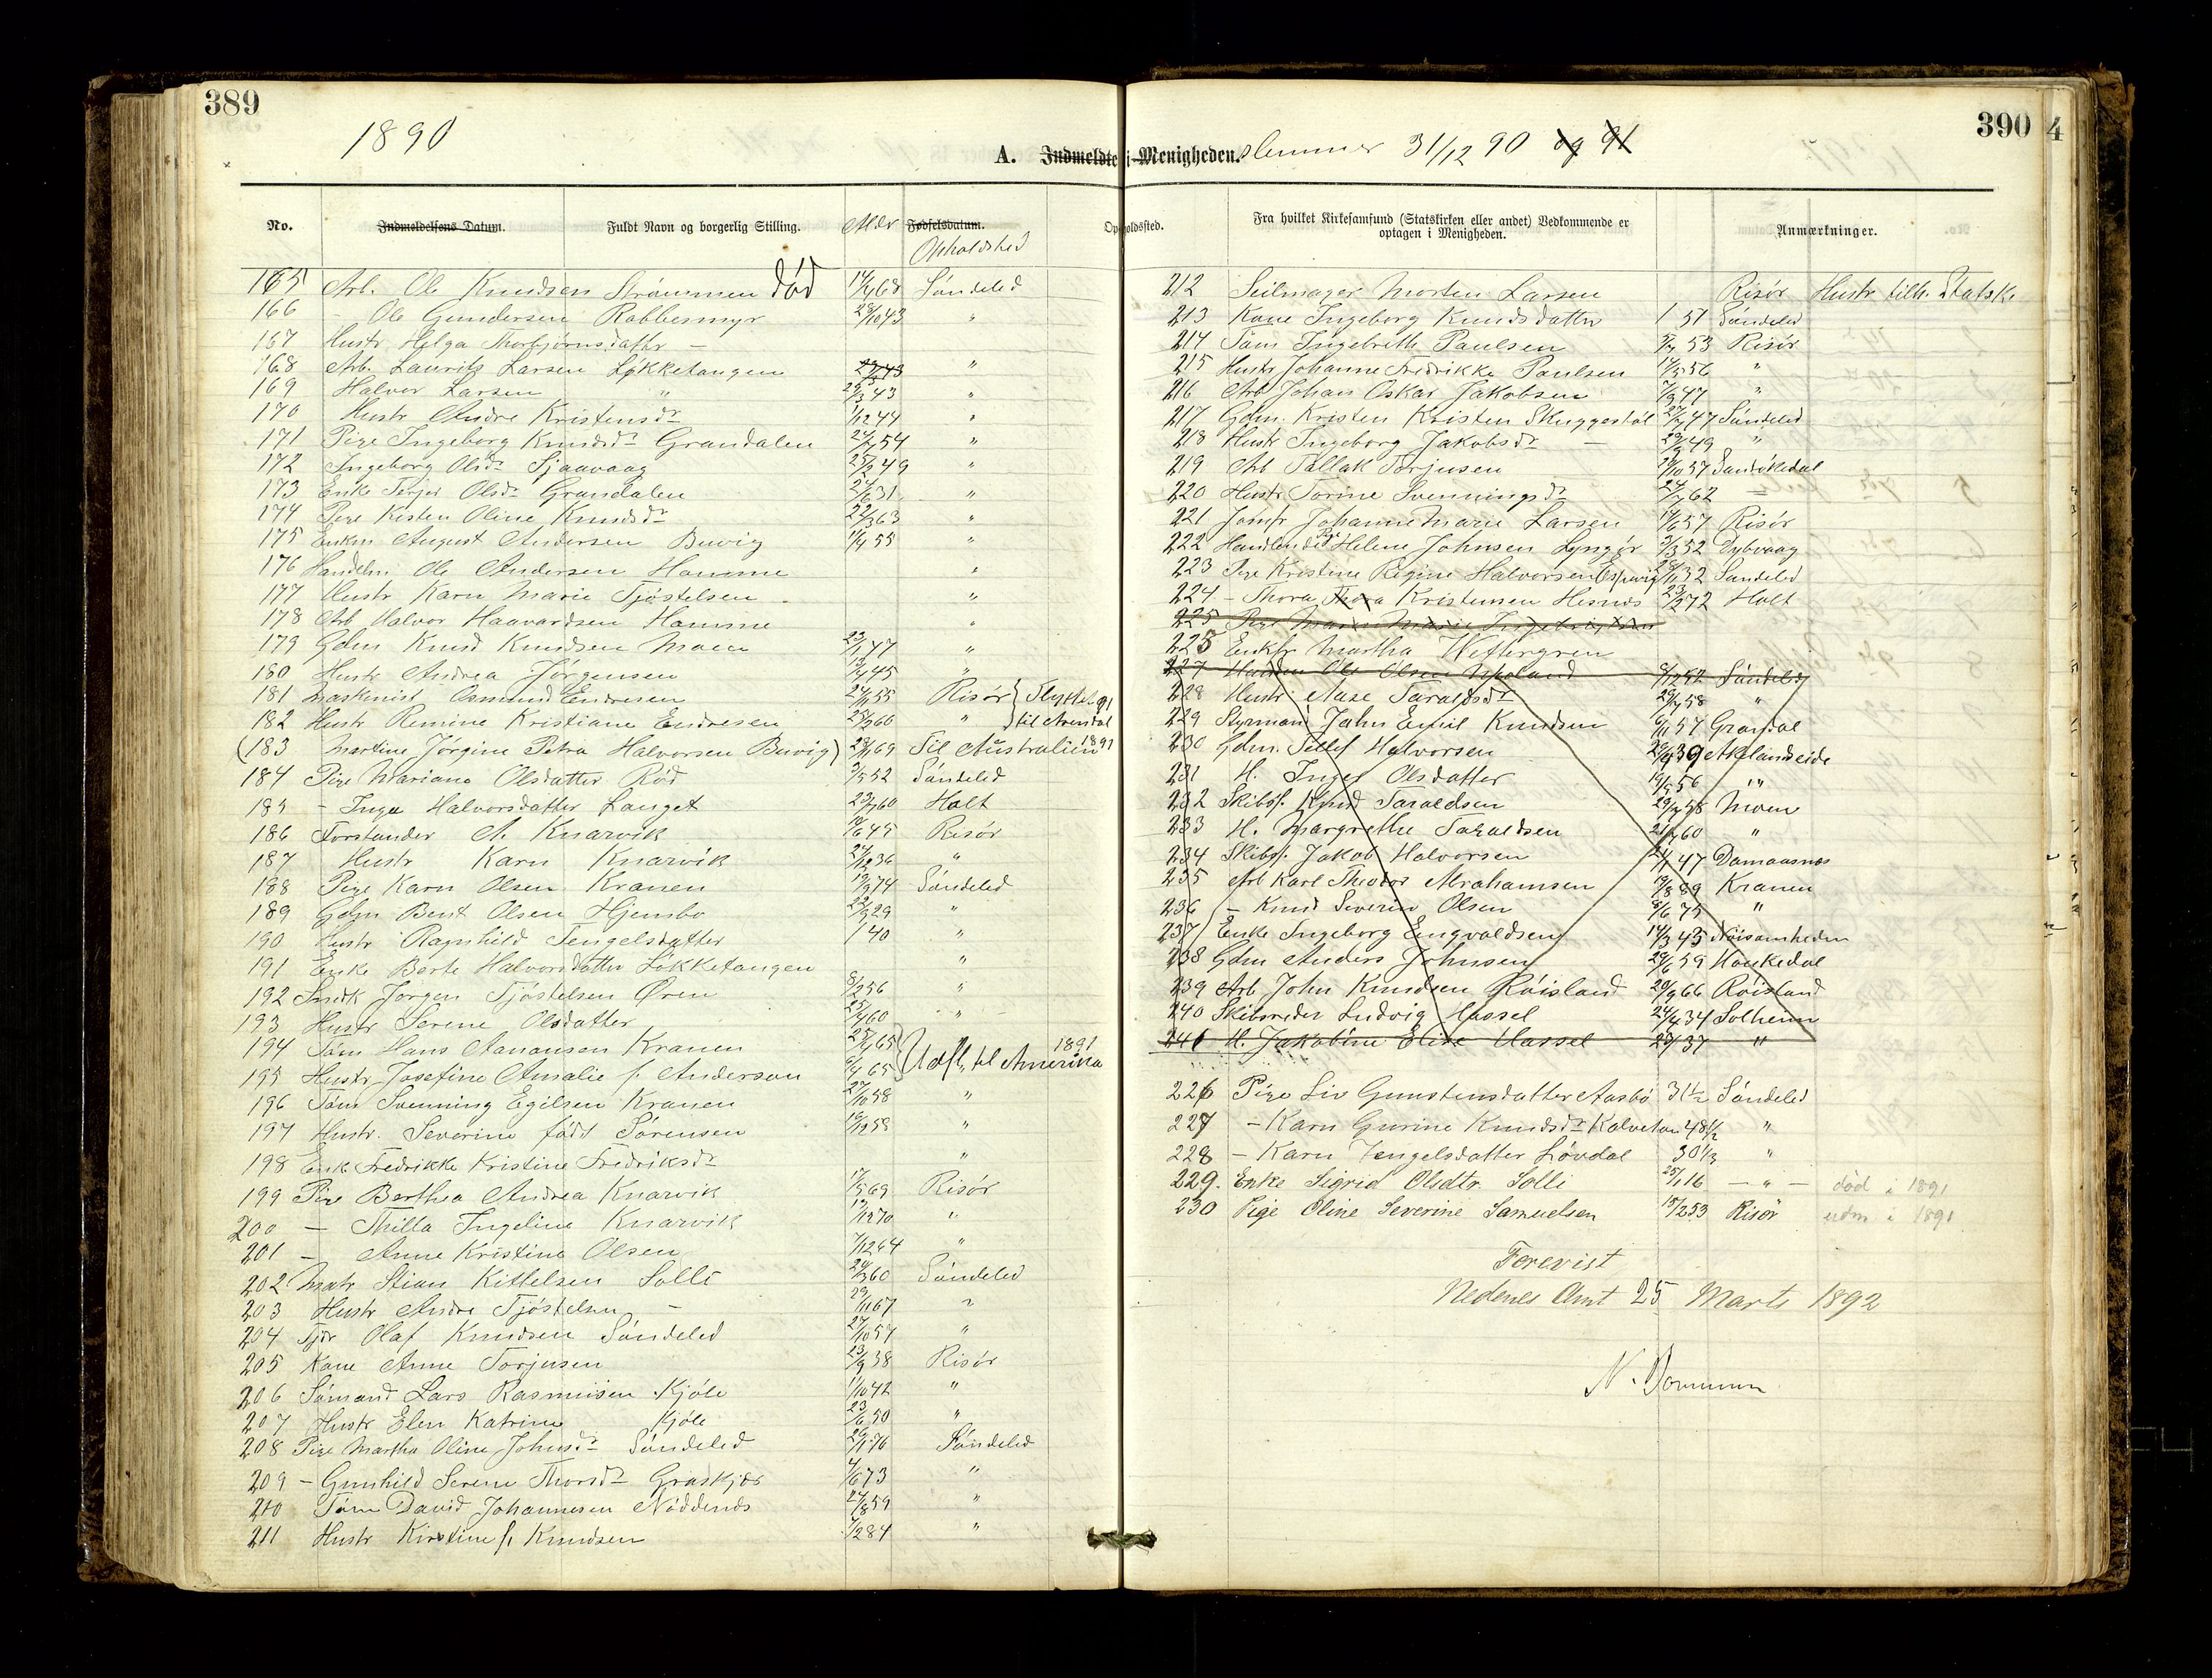 389
1890
A. Indmeldte i Menigheden.
No. Indmeldelsens Datum. Fuldt Navn og borgerlig Stilling. Alder Fødselsdatum. Opholdssted.
Opholdsted
165 Arb. Ole Knudsen Strømmen død 14/4 68 Søndeled
166 - Ole Gundersen Rabbesmyr 28/10 43 "
167 Hustr Helga Thorbjørnsdatter -
168 Arb. Laurits Larsen Løkketangen "
169 Halvor Larsen " 29/3 43 "
170 Hustr Andre Kristensdr 1/12 44 "
171 Pige Ingeborg Knudsdr Grandalen 24/4 54 "
172 Ingeborg Olsdr Sjaavaag 25/2 49 "
173 Enke Terjer Olsdr Grandalen 24/6 31 "
174 Pige Kisten Oline Knudsdr 22/3 63 "
175 Enkm August Andersen Buvig 1/4 55 "
176 Handelm Ole Andersen Hamme "
177 Hustr Karn Marie Tjøstelsen "
178 Arb Halvor Haavardsen Hamme "
179 Gdm Knud Knudsen Moen 23/1 47 "
180 Hustr Andrea Jørgensen 13/4 45 "
181 Maskinist Osmund Endresen 24/11 55 Risør } Flyttet 91
182 Hustr Remine Kristiane Endresen 25/2 60 " } til Arendal
(183 Martine Jørgine Petra Halvorsen Buvig) 23/1 69 Til Australien 1891
184 Pige Mariane Olsdatter Rød 3/5 52 Søndeled
185 - Inga Halvorsdatter Lauget 23/7 60 Holt
186 Forstander A. Knarvik 14/6 45 Risør
187 Hustr Karn Knarvik 27/12 36 "
188 Pige Karn Olsen Kranen 19/9 74 Søndeled
189 Gdm Bent Olsen Hjembo 22/9 29 "
190 Hustr Ragnhild Tengelsdatter / 40 "
191 Enke Berte Halvorsdatter Løkketangen "
192 Snedk Jørgen Tjøstelsen Øren 8/2 56 "
193 Hustr Serene Olsdatter 25/4 60 "
194 Tøm Hans Aanonsen Kranen 25/4 65 1891
195 Hustr Josefine Amalie f. Anderson 6/4 65 Udfl. til Amerika
196 Tøm Svenning Egilsen Kranen 27/10 58 "
197 Hustr. Severine født Sørensen 18/12 58 "
198 Enk Fredrikke Kristine Fredriksdr "
199 Pige Berthea Andrea Knarvik 17/5 69 Risør
200 - Thilla Ingeline Knarvik 12/12 70 "
201 - Anne Kristine Olsen 7/12 64 "
202 Matr Stian Kittelsen Solli 24/3 60 Søndeled
203 Hustr Andre Tjøstelsen - 29/11 67 "
204 Tjr Olaf Knudsen Søndeled 27/10 57 "
205 Kone Anne Torjusen 23/9 38 Risør
206 Sømand Lars Rasmusen Kjøle 1/10 42 "
207 Hustr Elen Katrine Kjøle 23/6 50 "
208 Pige Martha Oline Johnsdr Søndeled 26/1 76 Søndeled
209 - Gunhild Serene Thorsdr Graskjær 4/6 73 "
210 Tøm David Johannesen Nøddenæs 24/8 59 "
211 Hustr Kirstine f. Knudsen 7/2 84 "
390
4
lemmer 31/12 90 og 91
Fra hvilket Kirkesamfund (Statskirken eller andet) Vedkommende er
optagen i Menigheden. Anmærkninger.
212 Seilmager Morten Larsen Risør Hustr tilh. Statsk.
213 Kone Ingeborg Knudsdatter 1 51 Søndeled
214 Tøm Ingebreth Paulsen 3/7 53 Risør
215 Hustr Johanne Fredrikke Paulsen 14/5 56 "
216 Arb Johan Oskar Jakobsen 7/9 47 "
217 Gdm. Kristen Kristen Skuggestøl 27/4 47 Søndeled
218 Hustr Ingeborg Jakobsdr - 29/9 49 "
219 Arb Tallak Torjusen 29/10 57 Sandøkedal
220 Hustr Torine Svenningsdr 24/7 62 -
221 Jomfr Johanne Marie Larsen 17/6 57 Risør
222 Handlende Pge Helene Johnsen Lyngør 3/3 52 Dybvaag
223 Pge Kristine Regine Halvorsen Espevig 28/11 32 Søndeled
224 - Thora Thora Kristensen Hesnæs 23/2 72 Holt
225
225 Enkfr Martha Heftergren
227 Ole Olsen 8/12 52 Søndeled
228 Hustr Aase Taraldsdr 29/7 58 "
229 Styrmand John Emil Knudsen 6/11 57 Grandal
230 Gdm. Tellef Halvorsen 20/8 39 Aklandseide
231 H. Inger Olsdatter 19/5 56 " "
232 Skibsf. Knud Taraldsen 29/7 58 Moen
233 H. Margrethe Taraldsen 21/7 60 "
234 Skibsf. Jakob Halvorsen 21/1 47 Damaasnes
235 Arb Karl Theodor Abrahamsen 19/8 89 Kranen
236 - Knud Severin Olsen 8/6 75 "
237 Enke Ingeborg Engvoldsen 14/3 45 Nøisomheden
238 Gdm Anders Johnsen 29/6 59 Haukedal
239 Arb John Knudsen Røisland 29/9 66 Røisland
240 Skibsreder Ludvig Hassel 24/4 34 Solheim
241 H. Jakobine Elise Hassel 23/1 37 "
226 Pige Liv Gunstensdatter Aasbø 31 1/2 Søndeled
227 - Karn Gurine Knudsdr Kalvetan 48 1/2 "
228 - Karn Tengelsdatter Løvdal 30 1/3 "
229. Enke Sigrid Olsdtr. Solli 25/1 16 - " - død i 1891
230 Pige Oline Severine Samuelsen 15/2 53 Risør udm i 1891
Forevist
Nedenes Amt 25 Marts 1892